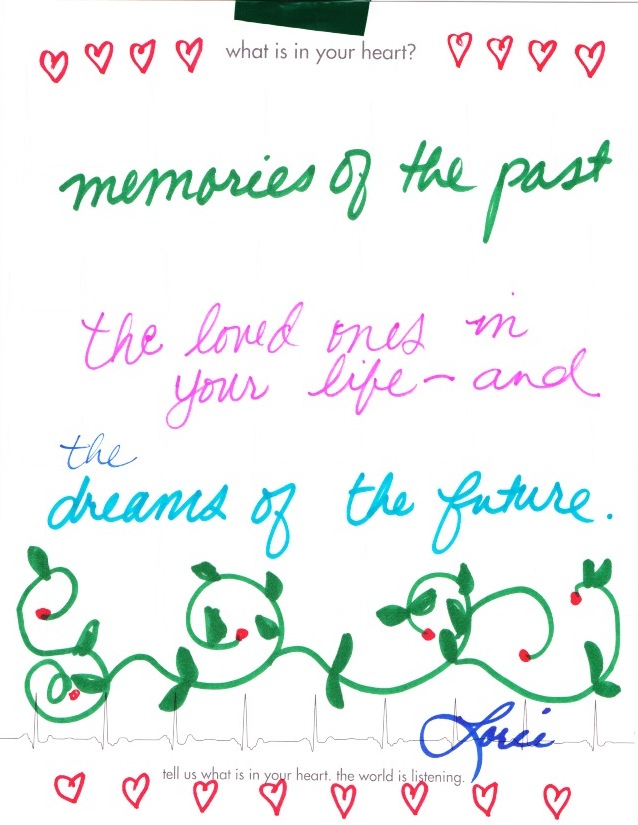 what is in your heart?
memories of the past
the loved ones in
your life - and
the
dreams of the future.
Lorii
tell us what is in your heart. the world is listening.